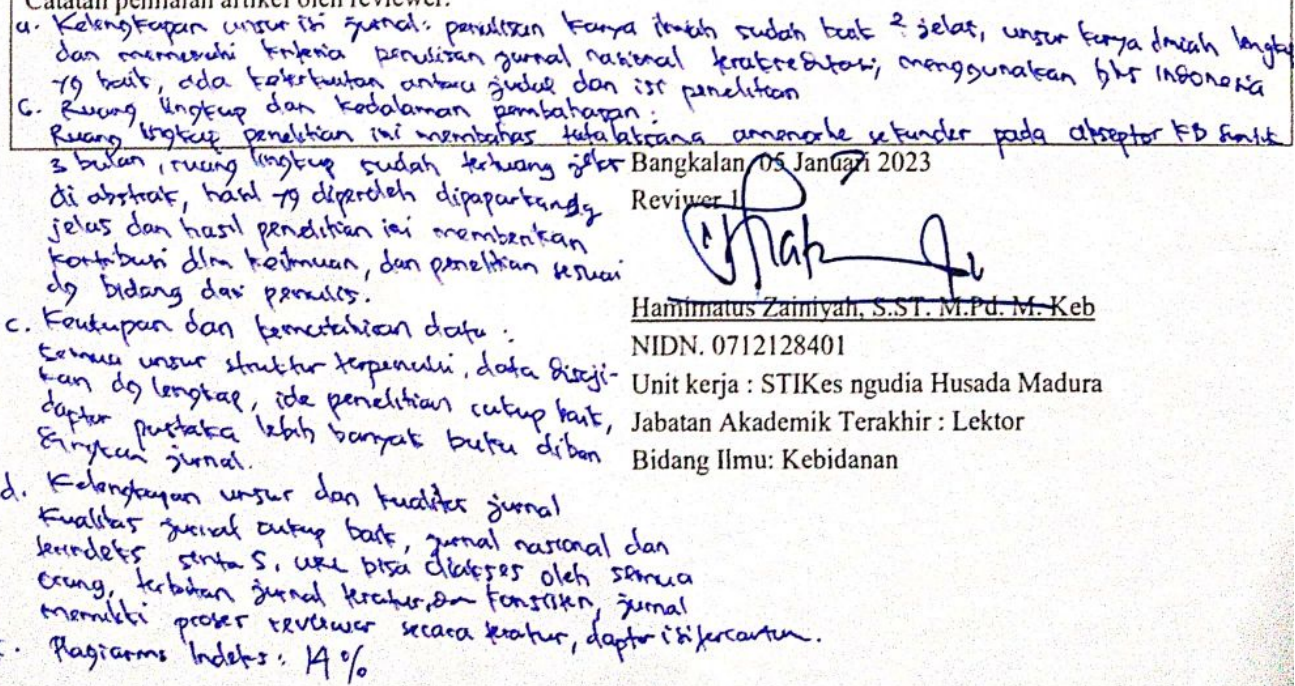 Catatan penilaian artikel oleh reviewer:
a. Kelengkapan unsur isi jurnal: penulisan karya ilmiah sudah baik 2 jelas, unsur karya ilmiah lengkap
dan memenuhi kriteria penulisan jurnal nasional terakreditasi, menggunakan bhs indonesia
yg baik, ada keterkaitan antara judul dan isi penelitian
Ruang lingkup dan kedalaman pembahasan:
Ruang lingkup penelitian ini membahas tatalaksana amenorhe sekunder pada akseptor KB Suntik
3 bulan, ruang lingkup sudah tertuang jelas
di abstrak, hasil yg diperoleh dipaparkan dg
jelas dan hasil penelitian ini memberikan
kontribusi dlm keilmuan, dan penelitian sesuai
dg bidang dari penulis.
c. dan kemutahiran data:
semua unsur struktur terpenuhi, data disaji-
kan dg lengkap, ide penelitian cukup baik,
daptar pustaka lebih banyak buku diban
dingkan jurnal.
d. Kelengkapan unsur dan kualitas jurnal
Kualitas jurnal cukup baik, jurnal nasional dan
terindeks sinta 5, URL bisa diakses oleh semua
orang, terbitan jurnal teratur, konsisten, jurnal
memilki proses reviewer secara teratur, daptar isi tercantum.
Plagiarms Indeks: 14 %
Bangkalan, 05 Januari 2023
Reviwer 1
Hamimatus Zainiyah, S.ST. M.Pd. M. Keb
NIDN. 0712128401
Unit kerja : STIKes ngudia Husada Madura
Jabatan Akademik Terakhir : Lektor
Bidang Ilmu: Kebidanan